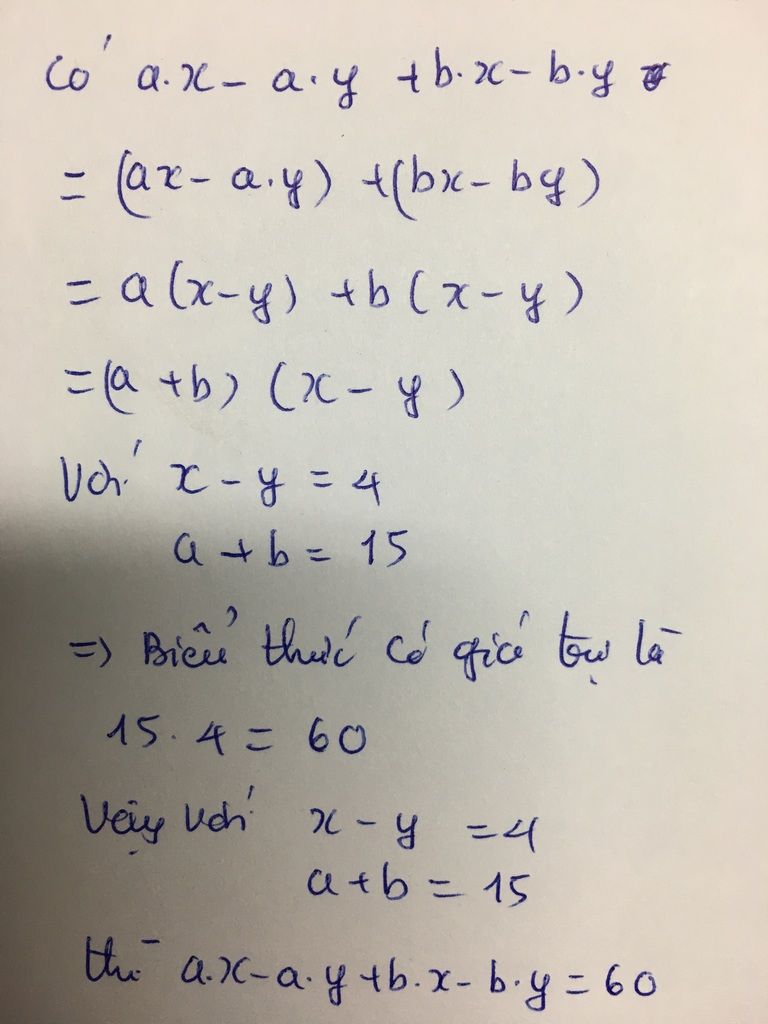 Có a.x - a.y + b.x - b.y
= (ax - a.y) + (bx - by)
= a(x-y) + b(x-y)
= (a + b) (x - y)
Với x - y = 4
a + b = 15
=> Biểu thức có giá trị là
15.4 = 60
Vậy với x - y = 4
a + b = 15
thì a.x - a.y + b.x - b.y = 60